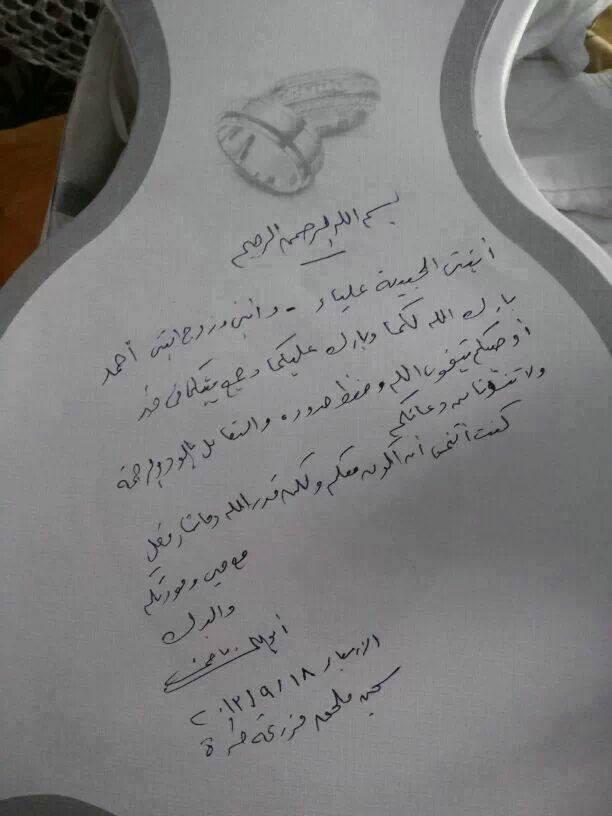 بسم الله الرحمن الرحيم
ابنتى الحبيبة علياء - وابنى وزوج ابنتى أحمد
بارك الله لكما وبارك عليكما وجمع بينكما فى خير
أوصيكم بتقوى الله وحفظ حدوده والتعامل بالود والرحمة
ولا تنسونا من دعائكم
كنت أتمنى أن أكون معكم ولكن قدر الله وما شاء فعل
والدك
الأربعاء ٢٠١٣/٩/١٨
سجن ملحق مزرعة طرة